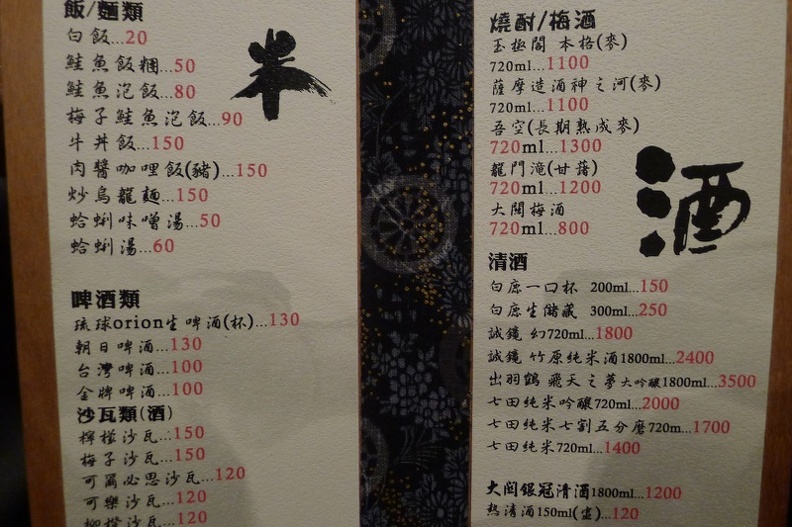 飯/麵類
白飯...20
鮭魚飯糰...50
鮭魚泡飯...80
梅子鮭魚泡飯...90
牛丼飯...150
肉醬咖哩飯(豬)...150
炒烏龍麵...150
蛤蜊味噌湯...50
蛤蜊湯...60
米
啤酒類
琉球orion生啤酒(杯)...130
朝日啤酒...130
台灣啤酒...100
金牌啤酒...100
沙瓦類(酒)
檸檬沙瓦...150
梅子沙瓦...150
可爾必思沙瓦...120
可樂沙瓦...120
柳橙沙瓦...120
燒酎/梅酒
玉極閣 本格(麥)
720ml...1100
薩摩造酒神之河(麥)
720ml...1100
吾空(長期熟成麥)
720ml...1300
龍門滝(甘藷)
720ml...1200
大關梅酒
720ml...800
酒
清酒
白鹿一口杯 200ml...150
白鹿生儲藏 300ml...250
誠鏡 幻720ml...1800
誠鏡 竹原純米酒1800ml...2400
出羽鶴 飛天之夢大吟釀1800ml...3500
七田純米吟釀720ml...2000
七田純米七割五分磨720m...1700
七田純米720ml...1400
大関銀冠清酒1800ml...1200
熱清酒150ml(壺)...120